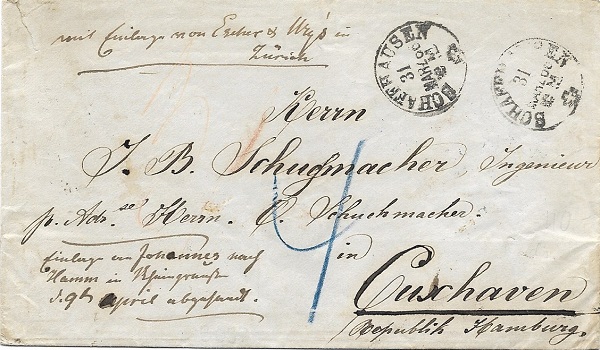 mit Einlage von Escher & Wyß in
Zürich
SCHAFFHAUSEN
31
SCHAFFHAUSEN
31
Herrn
J. B. Schuchmacher, Ingenieur
p. Adr.sse Herrn. C. Schuchmacher.
in
Einlage an Johannes nach
Hamm in
d. 9t April abgesandt.
Cuxhaven
Republik Hamburg.
4